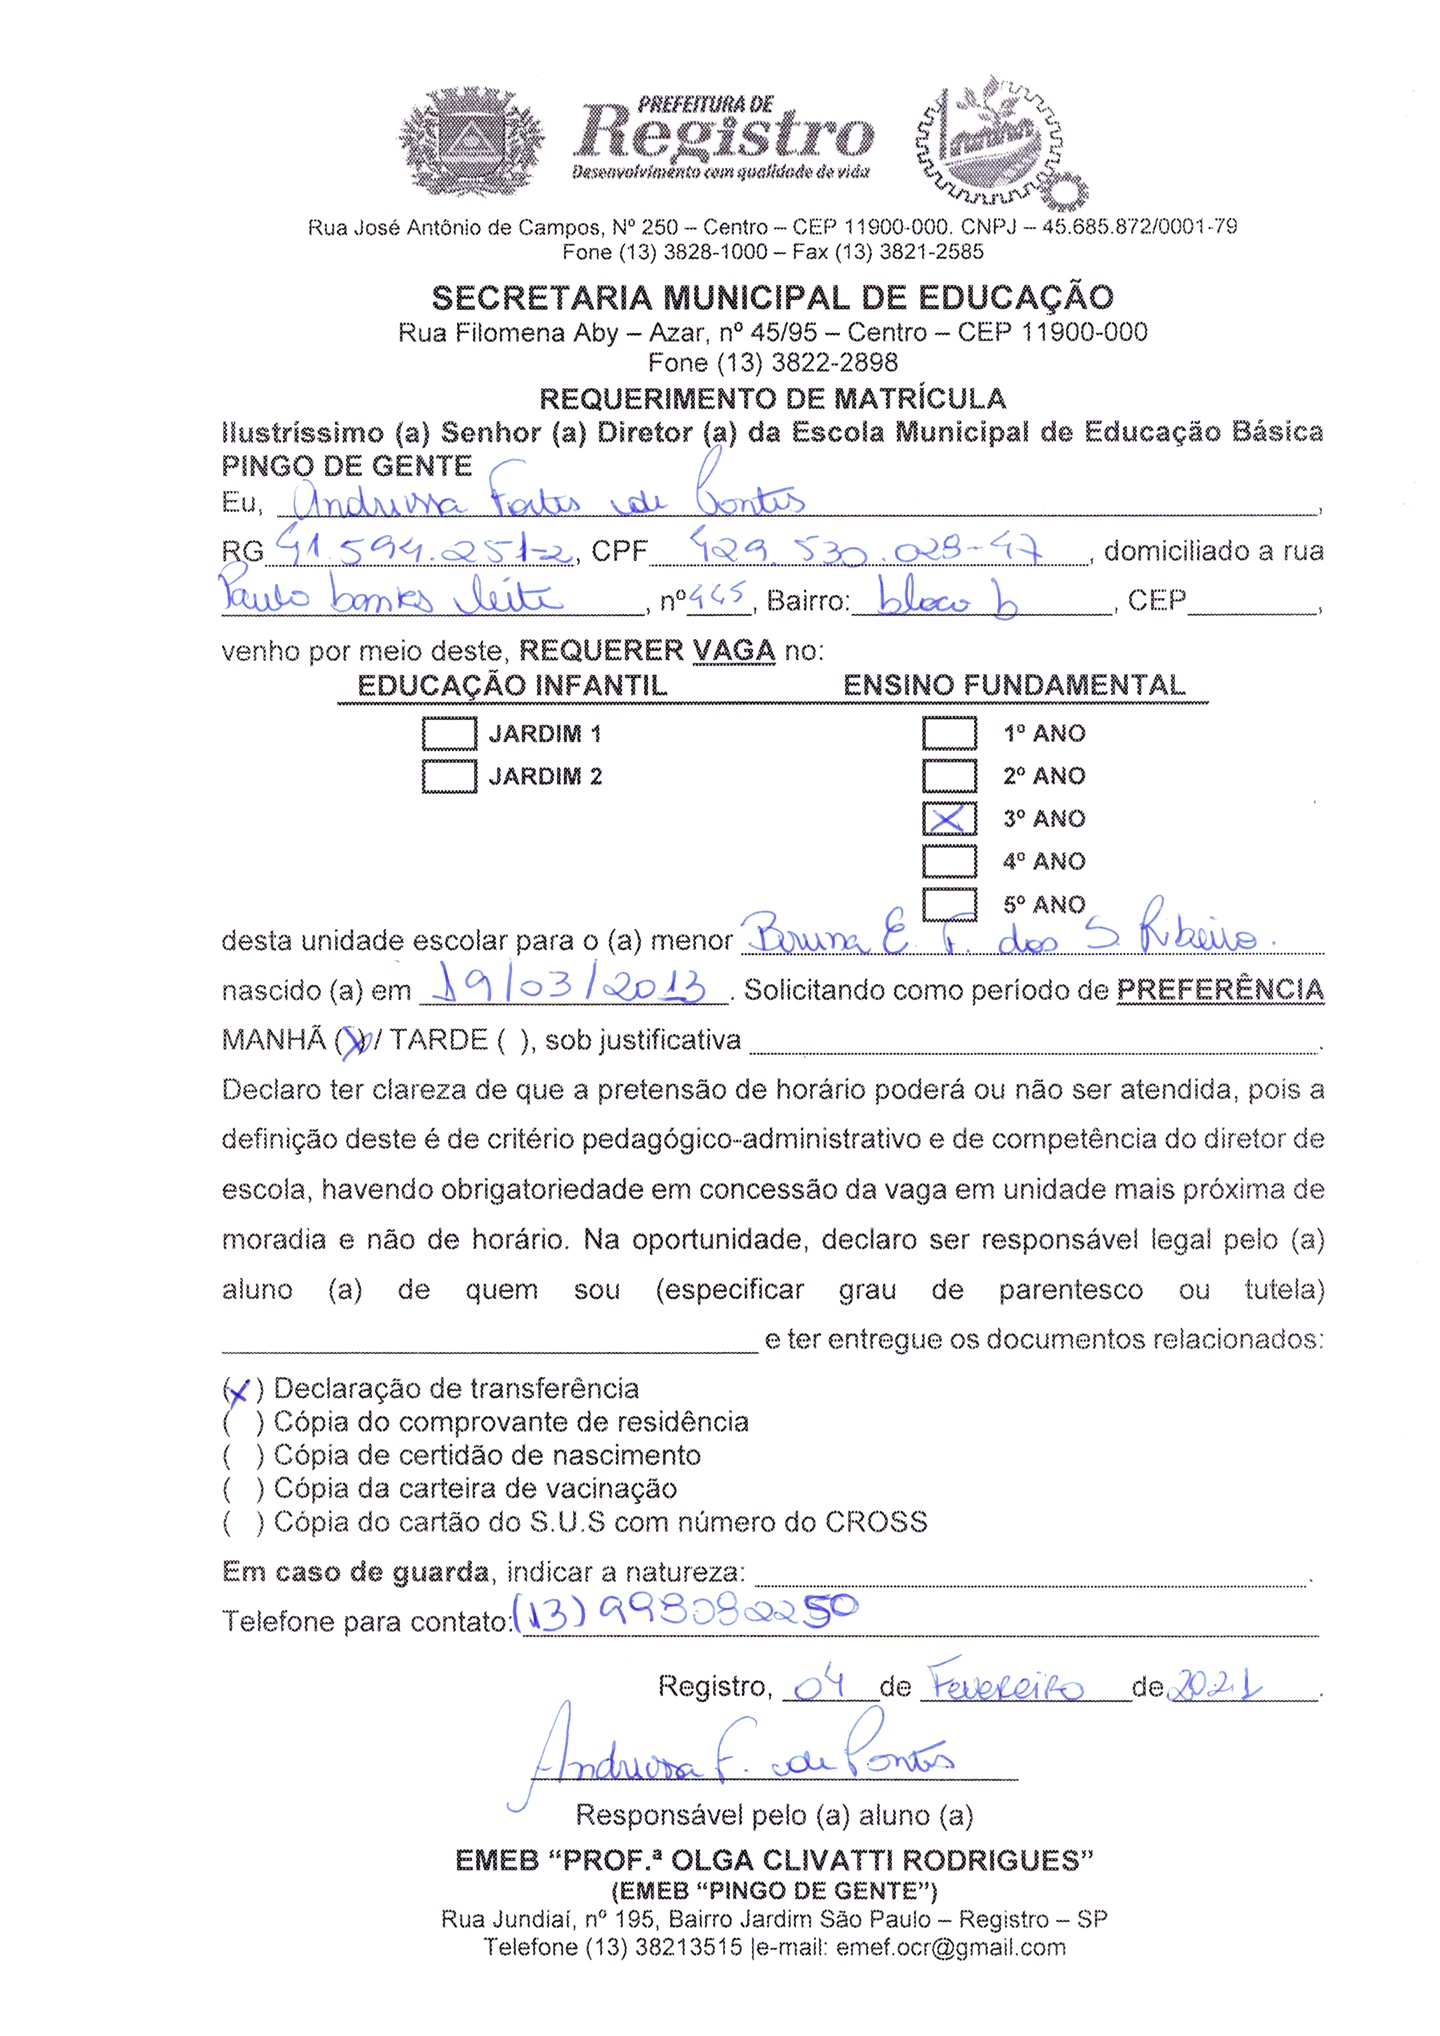 PREFEITURA DE
Registro
Desenvolvimento com qualidade de vida
Rua José Antônio de Campos, Nº 250 – Centro – CEP 11900-000. CNPJ – 45.685.872/0001-79
Fone (13) 3828-1000 – Fax (13) 3821-2585
SECRETARIA MUNICIPAL DE EDUCAÇÃO
Rua Filomena Aby – Azar, nº 45/95 – Centro – CEP 11900-000
Fone (13) 3822-2898
REQUERIMENTO DE MATRÍCULA
Ilustríssimo (a) Senhor (a) Diretor (a) da Escola Municipal de Educação Básica
PINGO DE GENTE
Eu, Andressa Fortes de Pontes,
RG 41.594.251-2, CPF 429.530.028-47, domiciliado a rua
Paulo banks leite, nº 445, Bairro: bloco b, CEP,
venho por meio deste, REQUERER VAGA no:
EDUCAÇÃO INFANTIL ENSINO FUNDAMENTAL
JARDIM 1 1º ANO
JARDIM 2 2º ANO
X 3º ANO
4º ANO
5º ANO
desta unidade escolar para o (a) menor Bruna E. F. dos S. Ribeiro.
nascido (a) em 19/03/2013. Solicitando como período de PREFERÊNCIA
MANHÃ (X) / TARDE ( ), sob justificativa .
Declaro ter clareza de que a pretensão de horário poderá ou não ser atendida, pois a
definição deste é de critério pedagógico-administrativo e de competência do diretor de
escola, havendo obrigatoriedade em concessão da vaga em unidade mais próxima de
moradia e não de horário. Na oportunidade, declaro ser responsável legal pelo (a)
aluno (a) de quem sou (especificar grau de parentesco ou tutela)
e ter entregue os documentos relacionados:
(X) Declaração de transferência
( ) Cópia do comprovante de residência
( ) Cópia de certidão de nascimento
( ) Cópia da carteira de vacinação
( ) Cópia do cartão do S.U.S com número do CROSS
Em caso de guarda, indicar a natureza: .
Telefone para contato: (13) 998082250
Registro, 04 de Fevereiro de 2021.
Andressa F. de Pontes
Responsável pelo (a) aluno (a)
EMEB “PROF.ª OLGA CLIVATTI RODRIGUES”
(EMEB “PINGO DE GENTE”)
Rua Jundiaí, nº 195, Bairro Jardim São Paulo – Registro – SP
Telefone (13) 38213515 |e-mail: emef.ocr@gmail.com